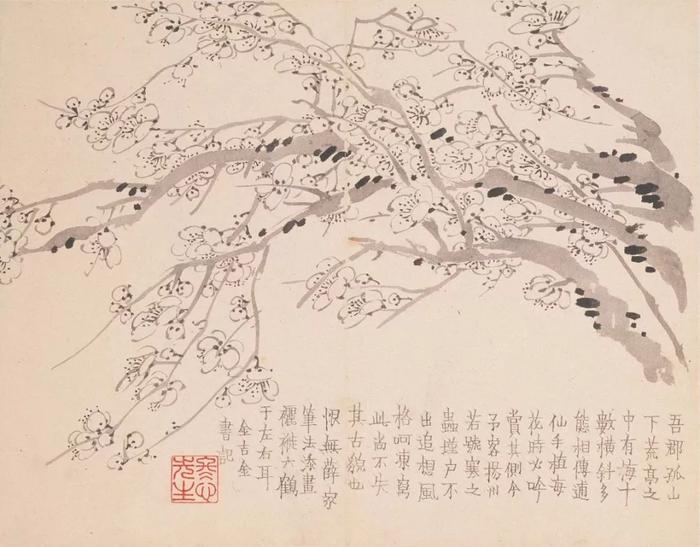 吾郡孤山
下荒亭之
中有梅十
數橫斜多
態相傳逋
仙手植每
花時必吟
賞其側今
予客揚州
若號寒之
蟲墐户不
出追想風
格呵凍寫
此尚不失
其古貌也
恨無薛家
筆法添畫
褵褷六鶴
于左右耳
金吉金
書記
冬心
先生